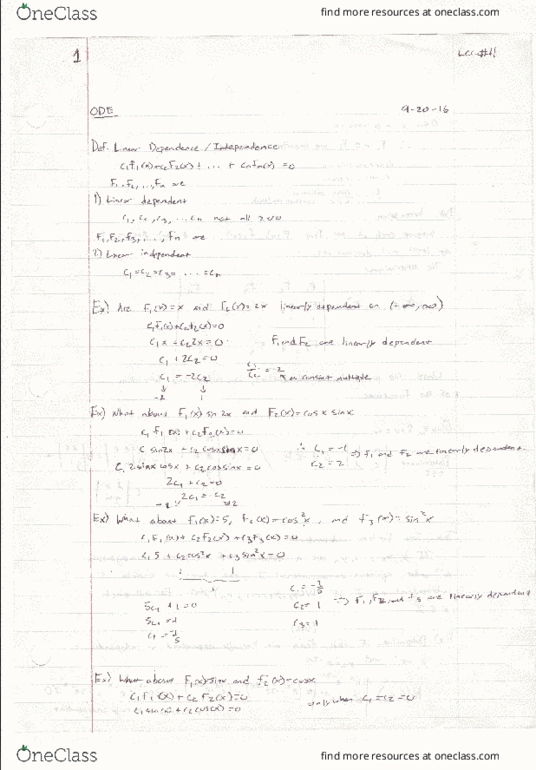 OneClass find more resources at oneclass.com
1
ODE 9-20-16
Def. Linear Dependence / Independence
c₁f₁(x)+c₂f₂(x)+ ... + cₙfₙ(x) = 0
F₁, F₂, ..., Fₙ are
1) Linear dependent
c₁, c₂, c₃, ... cₙ not all zero
F₁, F₂, F₃, ..., Fₙ are
2) Linear independent
c₁ = c₂ = c₃ = ... = cₙ
Ex) Are F₁(x) = x and f₂(x) = 2x linearly dependent on (-∞, ∞)
c₁f₁(x)+c₂f₂(x)=0
c₁x + c₂2x = 0 F₁ and F₂ are linearly dependent
c₁ + 2c₂ = 0
c₁ = -2c₂ c₁/c₂ = -2 constant multiple
-2 1
Ex) What about F₁(x) sin 2x and F₂(x) = cosx sinx
c₁f₁(x) + c₂f₂(x) = 0
c₁ sin2x + c₂cosxsinx = 0 ∴ c₁ = -1 ⇒ f₁ and f₂ are linearly dependent
c₁2sinxcosx + c₂cosxsinx = 0 c₂ = 2
2c₁ + c₂ = 0
Ex) What about f₁(x) = 5, f₂(x) = cos²x, and f₃(x) = sin²x
c₁f₁(x) + c₂f₂(x) + c₃f₃(x) = 0
c₁5 + c₂cos²x + c₃sin²x = 0
c₁ = -1/5
5c₁ + 1 = 0 c₂ = 1 ⇒ f₁, f₂ and f₃ are linearly dependent
5c₁ = -1 c₃ = 1
c₁ = -1/5
Ex) What about F₁(x)=sinx and f₂(x)=cosx
c₁f₁(x) + c₂f₂(x) = 0 only when c₁ = c₂ = 0
c₁sin(x) + c₂cos(x) = 0
OneClass find more resources at oneclass.com